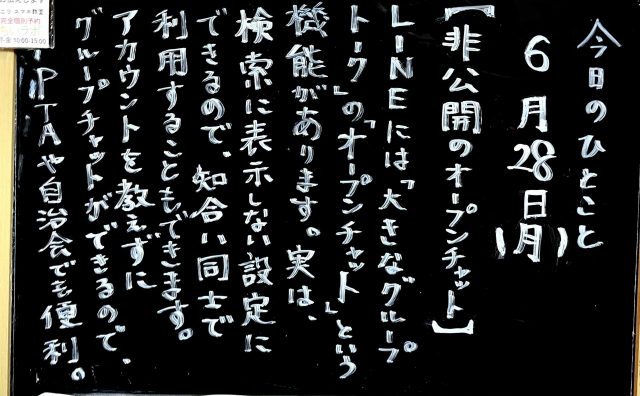 今日のひとこと
6月28日(月)
【非公開のオープンチャット】
LINEには「大きなグループ
トーク」の「オープンチャット」という
機能があります。実は、
検索に表示しない設定に
できるので、知合い同士で
利用することもできます。
アカウントを教えずに
グループチャットができるので、
PTAや自治会でも便利。
スマホ教室
完全個別予約
10:00-15:00